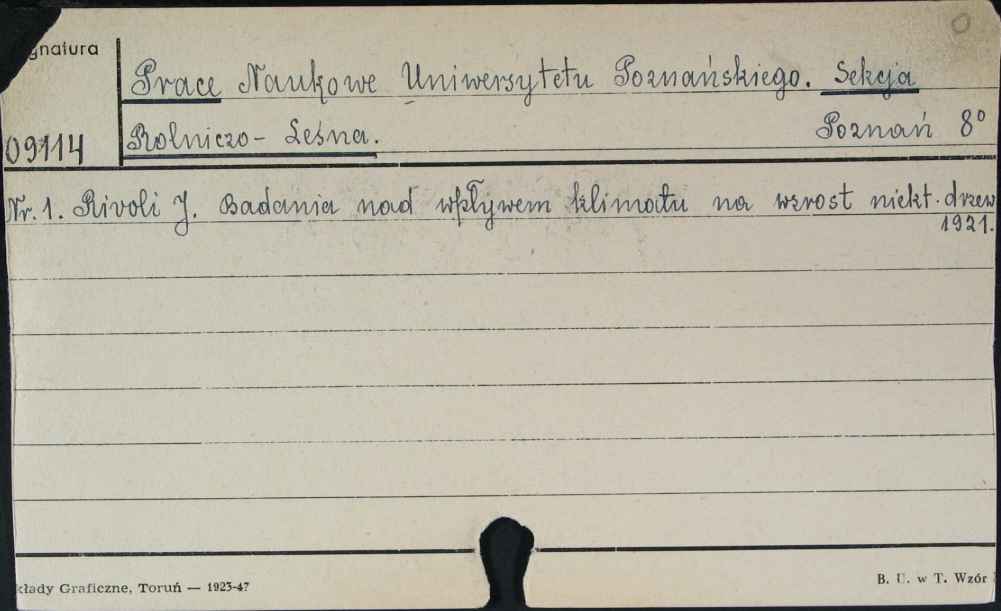 gnatura
Prace Naukowe Uniwersytetu Poznańskiego. Sekcja
09114 Rolniczo-Leśna. Poznań 8°
Nr. 1. Rivoli J. Badania nad wpływem klimatu na wzrost niekt. drzew
1921.
kłady Graficzne, Toruń — 1923-47
B. U. w T. Wzór